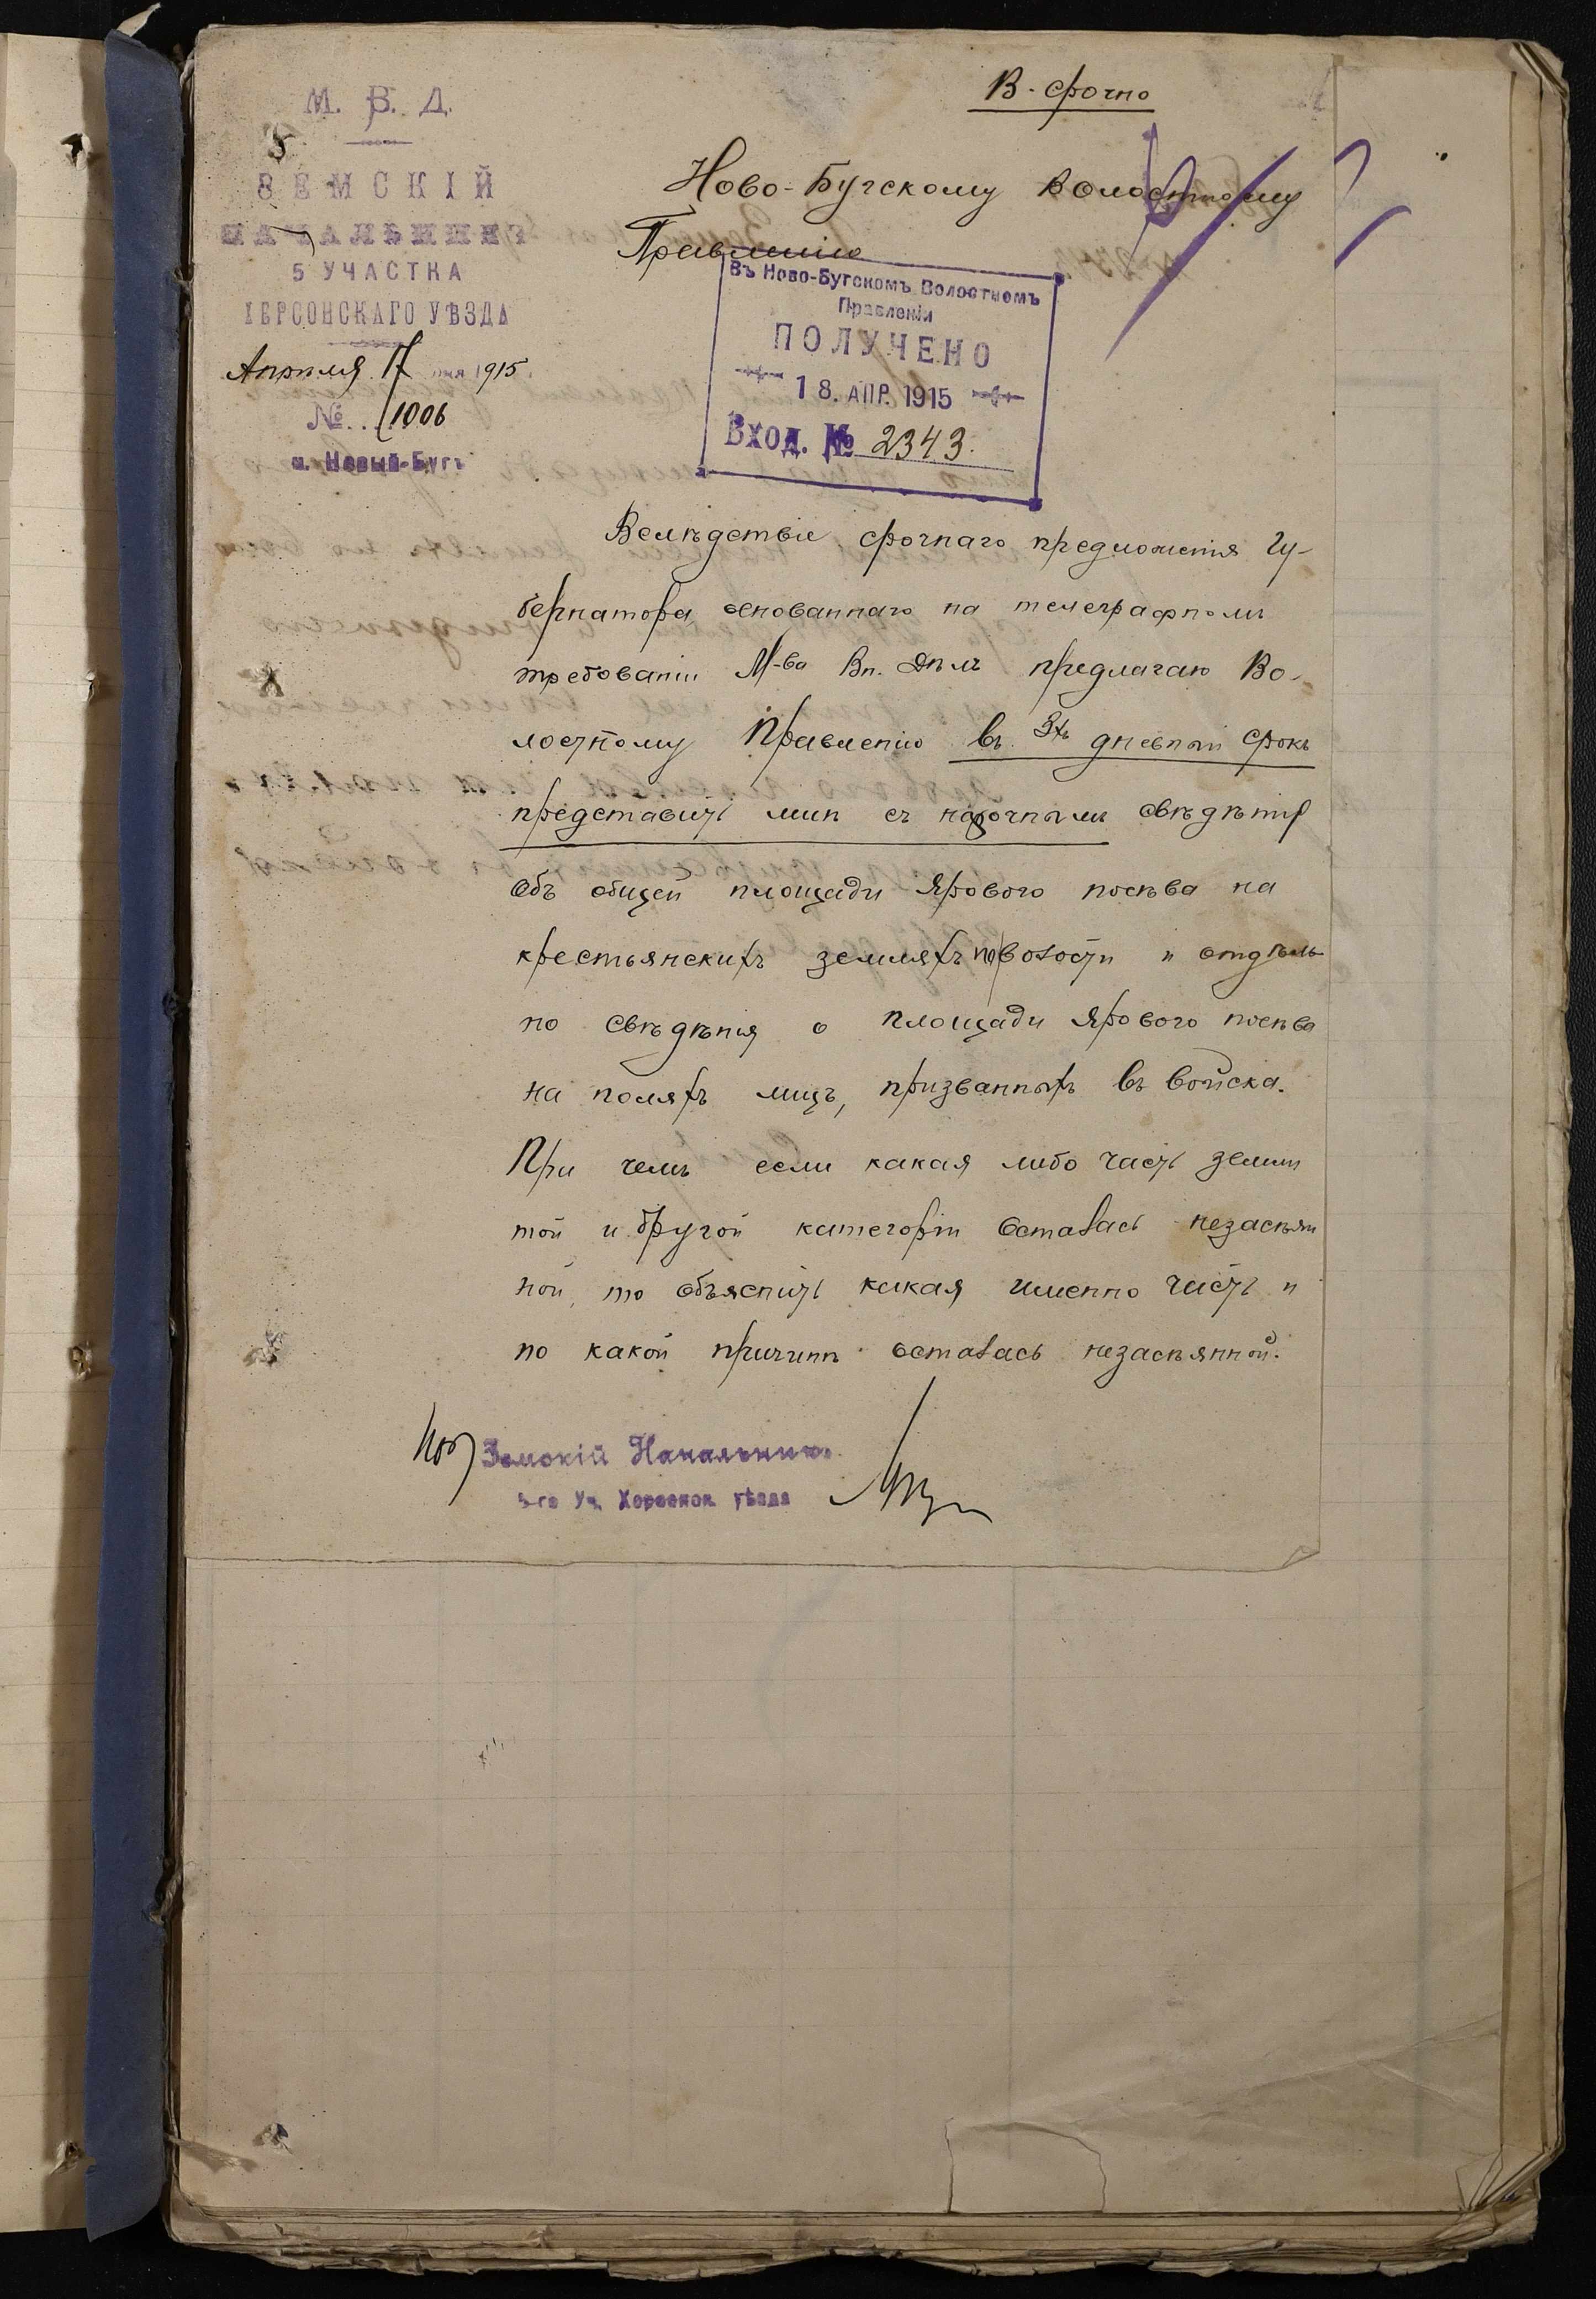 М. В. Д.
ЗЕМСКІЙ
НАЧАЛЬНИКЪ
5 УЧАСТКА
ХЕРСОНСКАГО УѢЗДА
Апрѣля 17 дня 1915
№ 1006
м. Новый-Бугъ
В. срочно
Ново-Бугскому Волостному
Правленію
Въ Ново-Бугскомъ Волостномъ
Правленіи
ПОЛУЧЕНО
18. АПР. 1915
Вход. № 2343.
Вслѣдствіе срочнаго предложенія Гу-
бернатора, основаннаго на телеграфномъ
требованіи М-ва Вн. Дѣлъ предлагаю Во-
лостному Правленію въ 3хъ дневный срокъ
представить мнѣ съ нарочнымъ свѣдѣнія
объ общей площади ярового посѣва на
крестьянскихъ земляхъ по волости и отдѣль-
но свѣдѣнія о площади ярового посѣва
на поляхъ лицъ, призванныхъ въ войска.
При чемъ если какая либо часть земли
той и другой категоріи осталась незасѣян
ной, то объяснить какая именно часть и
по какой причинѣ осталась незасѣянной.
Земскій Начальникъ
5-го Уч. Херсонск. уѣзда